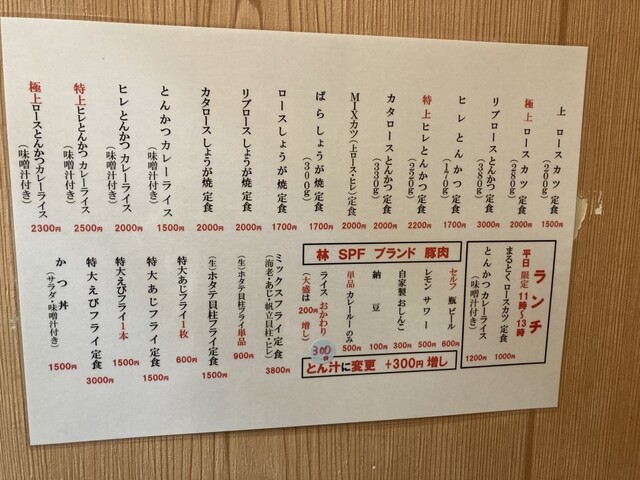 上 ロースカツ 定食 (200g) 1500円
極上 ロースカツ 定食 (250g) 2000円
リブロースとんかつ 定食 3000円
ヒレ とんかつ 定食 (170g) 1700円
特上 ヒレとんかつ 定食 (220g) 2200円
カタロースとんかつ定食 (330g) 2000円
MIXカツ(上ロース・ヒレ)定食 2000円
ばら しょうが焼 定食 (300g) 1700円
ロース しょうが焼 定食 1700円
リブロース しょうが焼 定食 2000円
カタロース しょうが焼 定食 2000円
とんかつ カレーライス 1500円
ヒレ とんかつ カレーライス (味噌汁付き) 2000円
特上 ヒレとんかつ カレーライス (味噌汁付き) 2500円
極上 ロースとんかつ カレーライス (味噌汁付き) 2300円
ランチ
平日 限定 11時〜13時
まるとく ロースカツ 定食 1000円
とんかつ カレーライス (味噌汁付き) 1200円
林 SPF ブランド 豚肉
セルフ 瓶ビール 600円
レモン サワー 500円
自家製 おしんこ 300円
納豆 100円
単品 カレールーのみ 500円
ライス おかわり 300円
(大盛は 200円 増し)
とん汁に変更 +300円 増し
ミックスフライ定食 (海老・あじ・帆立貝柱・ヒレ) 3800円
(生)ホタテ貝柱フライ単品 900円
(生)ホタテ 貝柱フライ 定食 1500円
特大あじフライ1枚 600円
特大 あじフライ 定食 1500円
特大えびフライ1本 1500円
特大 えびフライ 定食 3000円
かつ丼 (サラダ・味噌汁付き) 1500円